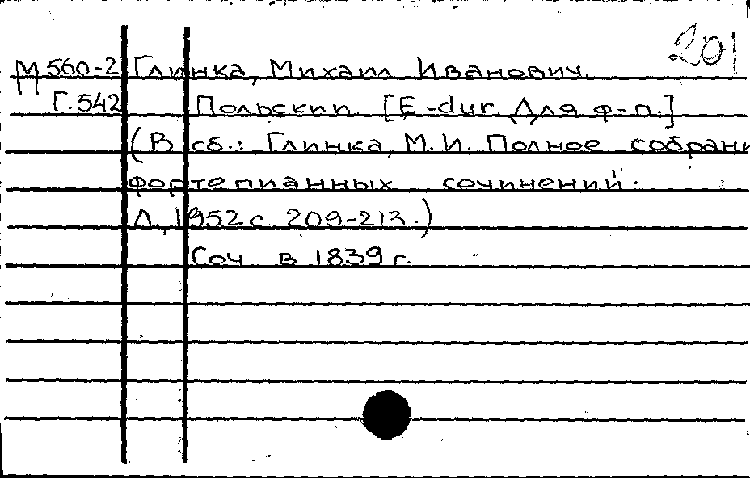 201
М 560-2 Глинка, Михаил Иванович.
Г.542 Польский [E-dur. Для ф-п.]
(В сб.: Глинка, М.И. Полное собрани
фортепианных сочинений.
Л, 1952 с 209-213.)
Соч в 1839 г.